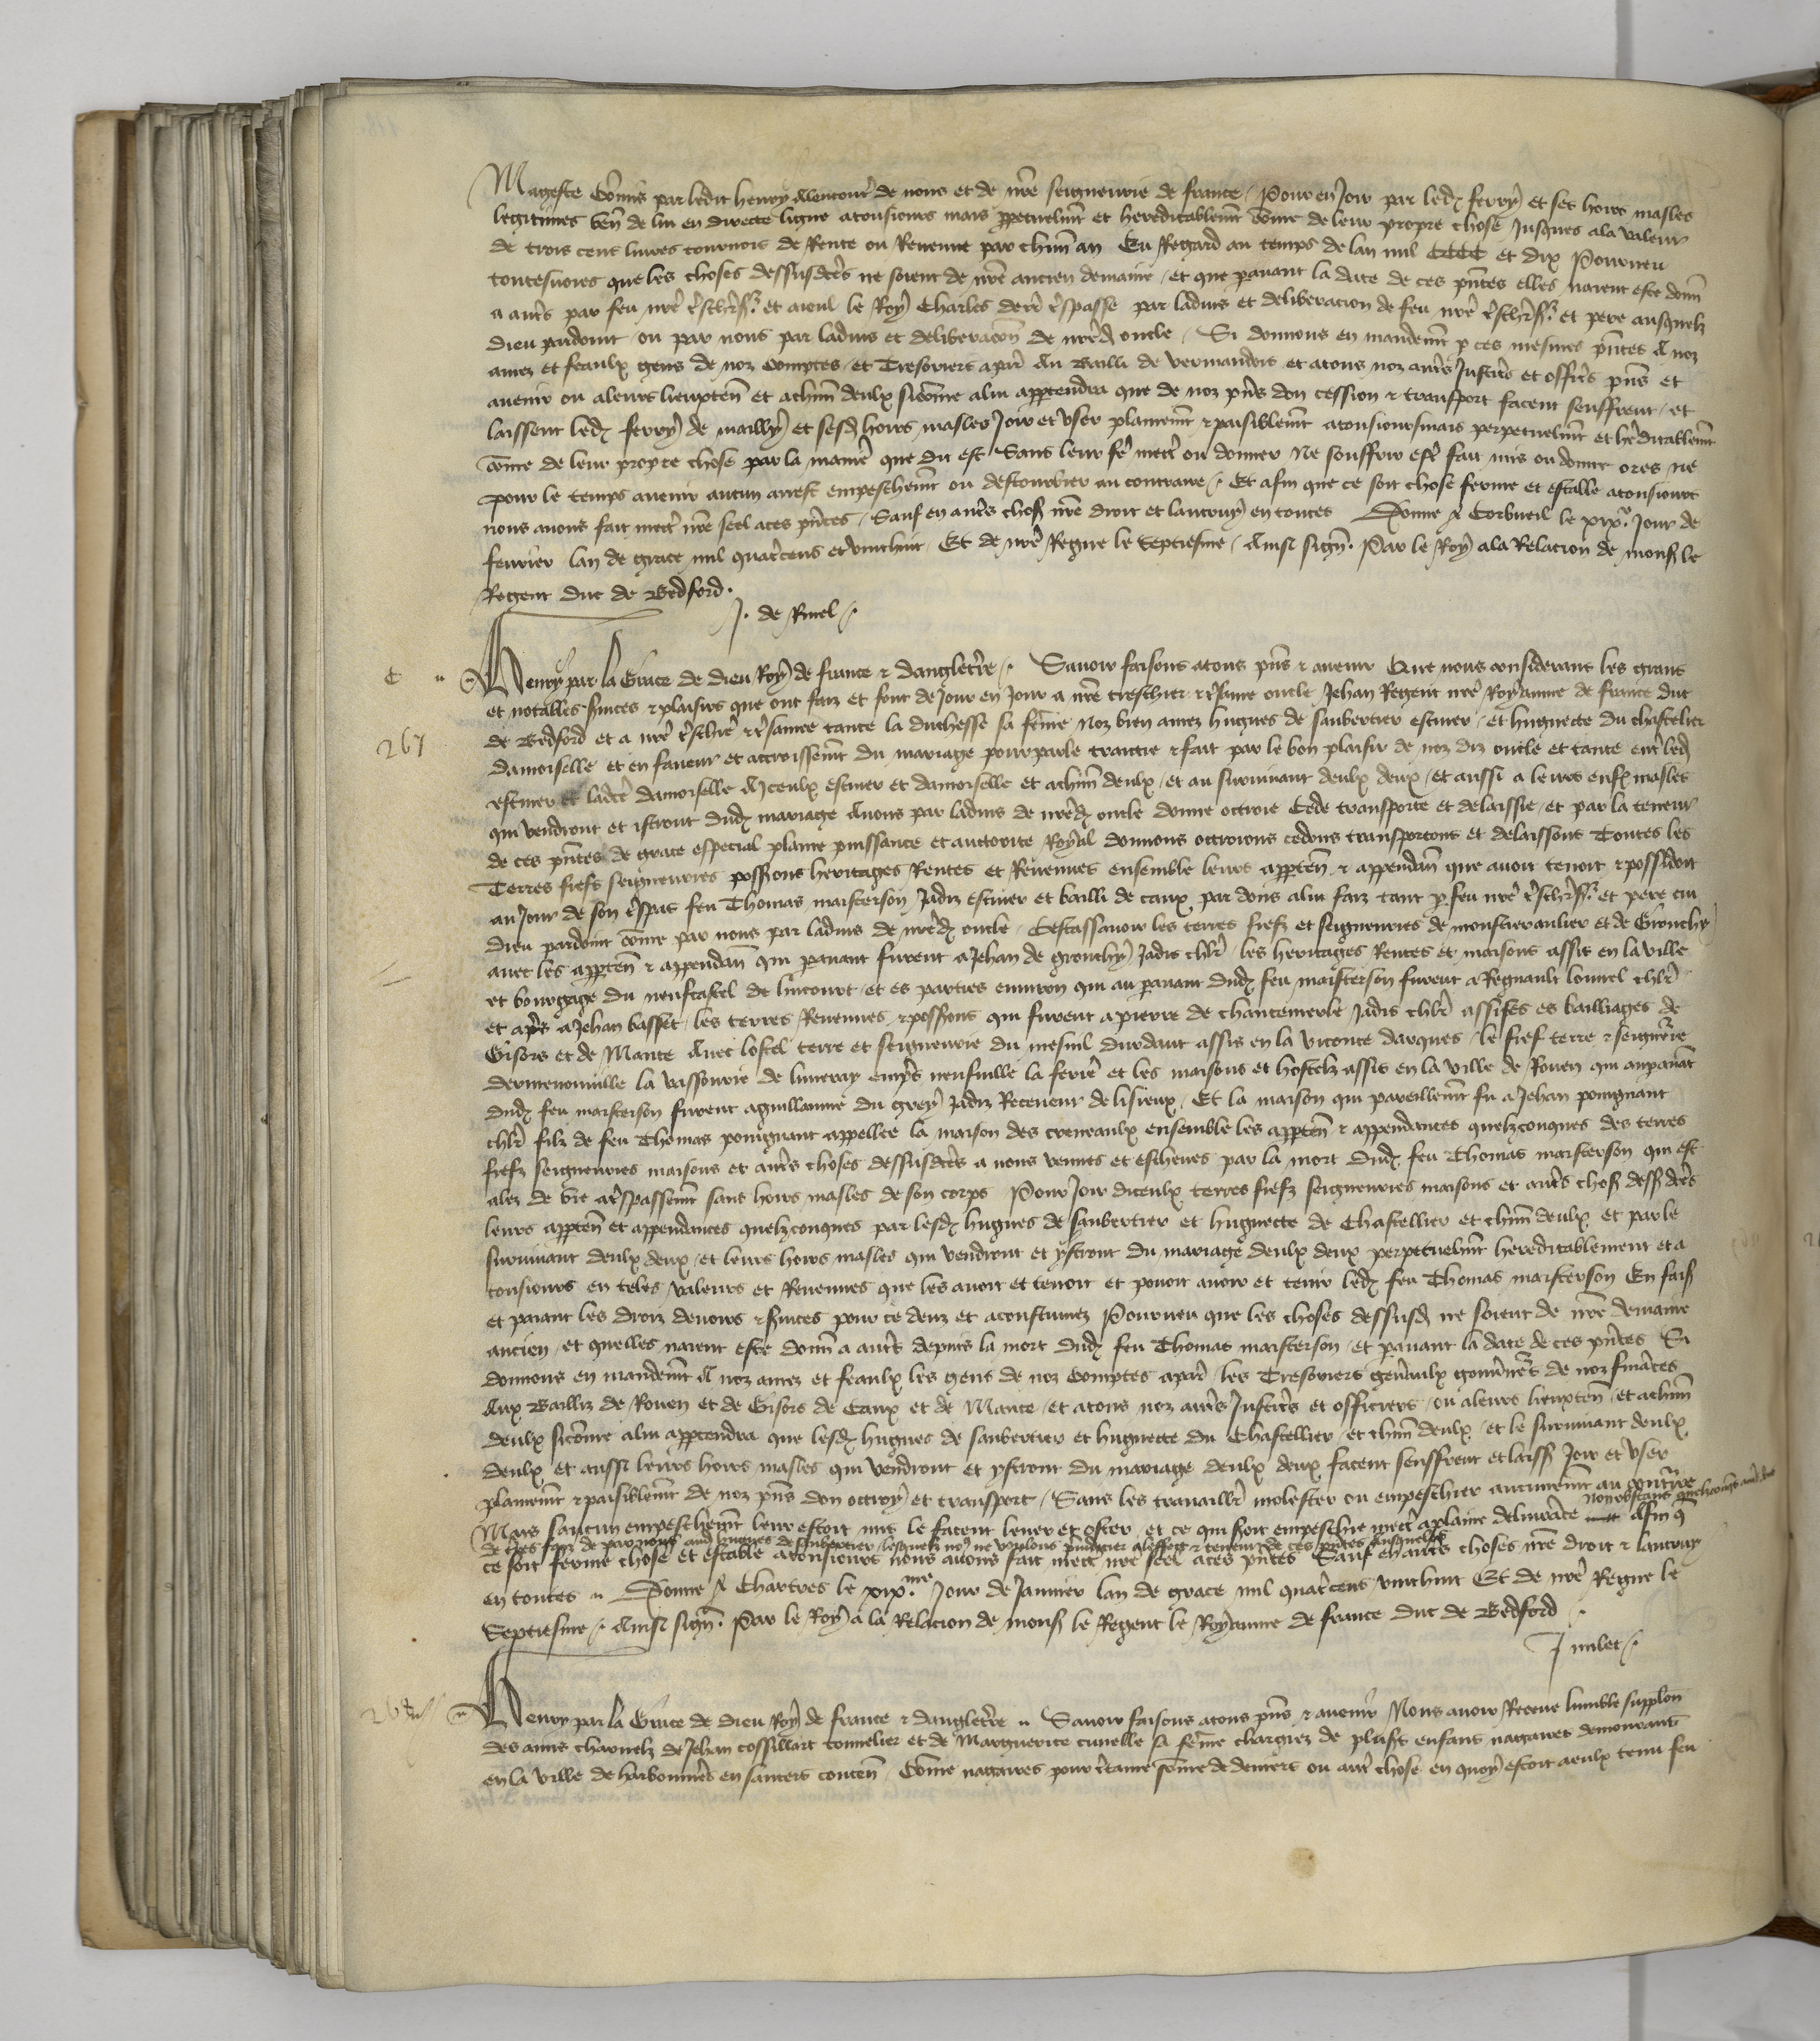 Mageste Comis par ledit henry Alencontr̄ de nous et de nr̄e seigneurie de france / Pour en Joir par led ferry et ses hoirs masles
legitimes ven̄ de lui en directe ligne atousiours mais ppetuelmt et hereditablemt cōme de leur propre chose Jusques ala valeur
de trois cens livres tournois de Rente ou Revenue par chūn an Eu Regard au temps de lan mil CCCC et dix Pourveu
toutesvoies que les choses dessusdctes ne soient de nr̄e ancien demaine / et que pavant la date de ces pn̄tes elles naient este donn̄
a autr̄s par feu nr̄e tr̄schr̄ sr̄ et aieul le Roy Charles derr̄ tr̄spasse par ladvis et deliberacion de feu nr̄e tr̄schr̄ sr̄ et pere ausquelz
dieu pardoint / ou par nous par ladvis et deliberacōn de nr̄ed oncle / Si donnons en mandemt p ces mesmes pn̄tes A noz
amez et feaulx gens de noz Comptes / et Tresoriers apar̄ Au Bailli de Vermandois et atous noz autr̄s Justic̄s et offic̄s pn̄s et
avenir ou aleurs lieuxten̄ et achūn deulx sicōme alui apptendra que de noz pn̄s don cession & transport facent seuffrent / et
laissent led ferry de mailly et sesd hoirs masles Joir et user plainemt & paisiblemt atousioursmais perpetuelmt et her̄ditablemt
cōme de leur propre chose par la manie que dit est Sans leur fe mectr̄ ou donner Ne souffrir estr̄ fait mis ou donne ores ne
pour le temps avenir aucun arrest empeschemt ou destourbier au contraire / Et afin que ce soit chose ferme et estable atousiours
nous avons fait mectr̄ nr̄e seel aces pn̄tes / Sauf en autr̄s chos nr̄e droit et lautruy en toutes Donne A Corbueil le xixe Jour de
fevrier lan de grace mil quatr̄cens et vinthuit Et de nr̄e Regne le Septiesme / Ainsi sign̄. Par le Roy ala Relacion de mons le
Regent duc de Bedford.
J. de Rinel /.
C
267
Henry par la Grace de dieu Roy de france & dangletr̄re /. Savoir faisons atous pn̄s & avenir Que nous considerans les grans
et notables svices & plaisirs que ont faiz et font de Jour en Jour a nr̄e treschier & tr̄same oncle Jehan Regent nr̄e Royaume de france duc
de Bedford et a nr̄e tr̄schr̄e & tr̄samee tante la duchesse sa fēme Noz bien amez hugues de saubertier escuier / et huguecte du chastelier
damoiselle et en faveur et accroissemt du mariage pourparle traictie & fait par le bon plaisir de noz diz oncle et tante entr̄ led
escuier et ladcte damoiselle A Iceulx escuier et damoiselle et achūn deulx / et au survivant deulx deux / et aussi a leurs enfs masles
qui vendront et istront dud mariage Avons par ladvis de nr̄ed oncle donne octroie Cede transporte et delaissie / et par la teneur
de ces pn̄tes de grace especial plaine puissance et auctorite Royal donnons octroions cedons transportons et delaissons Toutes les
Terres fiefs seigneuries possions heritages Rentes et Revenues ensemble leurs apparten̄ & appendan̄ que avoit tenoit & possidoit
au Jour de son tr̄spas feu Thomas maisterson Jadiz escuier et bailli de caux par dons alui faiz tant p feu nr̄e tr̄schr̄ sr̄ et pere cui
dieu pardoint cōme par nous par ladvis de nr̄ed oncle / Cestassavoir les terres fiefz et seigneuries de monstieraulier et de Grouchy
avec les apparten̄ & appendan̄ qui pavant furent a Jehan de grouchy Jadis chlr̄ / les heritages Rentes et maisons assis en la ville
et bourgage du neufcastel de lincourt / et es parties environ qui au pavant dud feu maisterson furent a Regnault louvel chlr̄
et apr̄s a Jehan basset / les terres Revenues & possions qui furent a pierre de chantemerle Jadis chlr̄ assises es bailliages de
Gisors et de Mante Avec lostel terre et seigneurie du mesnil durdant assis en la viconte darques / le fief terre & seignr̄ie
dermenouville la vassourie de lineray emprs neufville la ferr̄e et les maisons et hostelz assis en la ville de Rouen qui aupavāt
dud feu maisterson furent aguillaume du grey Jadiz Receveur de lisieux / Et la maison qui pareillemt fu a Jehan poingnant
chlr̄ filz de feu Thomas poingnant appellee la maison des creneaulx ensemble les appten̄ & appendances quelzconques des terres
fiefz seigneuries maisons et autr̄s choses dessusdctes a nous venues et escheues par la mort dud feu Thomas maisterson qui est
alez de vie atr̄spassemt sans hoirs masles de son corps Pour Joir diceulx terres fiefz seigneuries maisons et autr̄s chos dessdctes
leurs appten̄ et appendances quelzconques par lesd hugues de saubertier et huguecte de Chastellier et chūn deulx et par le
survivant deulx deux / et leurs hoirs masles qui vendront et ystront du mariage deulx deux perpetuelmt hereditablement et a
tousiours en teles valeurs et Revenues que les avoit et tenoit et povoit avoir et tenir led feu Thomas maisterson En fais
et paiant les droiz devoirs & svices pour ce deuz et acoustumez Pourveu que les choses dessusd ne soient de nr̄e demaine
ancien / et quelles naient este donn̄ a autr̄s depuis la mort dud feu Thomas maisterson / et pavant la date de ces pn̄tes Si
donnons en mandemt A noz amez et feaulx les gens de noz Comptes apar̄ / les Tresoriers gen̄aulx gouvn̄rs de noz fināces
Aux Bailliz de Rouen et de Gisors de Caux et de Mante / et atous noz autr̄s Justic̄s et officiers / ou aleurs lieuxten̄ / et achūn
deulx sicōme alui apptendra que lesd hugues de saubertier et huguecte du Chastellier / et chūn deulx / et le survivant deulx
deulx et aussi leurs hoirs masles qui vendront et ystront du mariage deulx deux facent seuffrent et laiss Joir et user
plainemt & paisiblemt de noz pn̄s don octroy et transport / Sans les travaillr̄ molester ou empeschier aucunemt au contr̄re
Mais saucun empeschemt leur estoit mis le facent lever et oster et ce qui seroit empeschie mectr̄ aplaine delivrāce nonobstans quelxconqs autr̄s dons Afin q
de tr̄res faiz de par nous aud hugues de saubertier / lesquelz no9 ne voulons pn̄diciier aleffect & teneur de ces pn̄tes ausquelles
ce soit ferme chose et estable atousiours nous avons fait mectr̄ nr̄e seel aces pn̄tes Sauf en autr̄s choses nr̄e droit & lautruy
en toutes Donne A Chartres le xixme Jour de Janvier lan de grace mil quatr̄cens vinthuit Et de nr̄e Regne le
Septiesme /. Ainsi sign̄. Par le Roy a la Relacion de mons le Regent le Royaume de france duc de Bedford
J milet /.
Henry par la Grace de dieu Roy de france & dangletr̄re Savoir faisons atous pn̄s & avenir Nous avoir Receue lumble supplōn
des amis charnelz de Jehan cossillart tonnelier et de Marguerite cunelle sa fēme chargiez de plusrs enfans nagaires demourans
en la ville de harbonnier̄s en santers conten̄ / Cōme nagaires pour tr̄taine sōme de deniers ou autr̄ chose en quoy estoit aeulx tenu feu